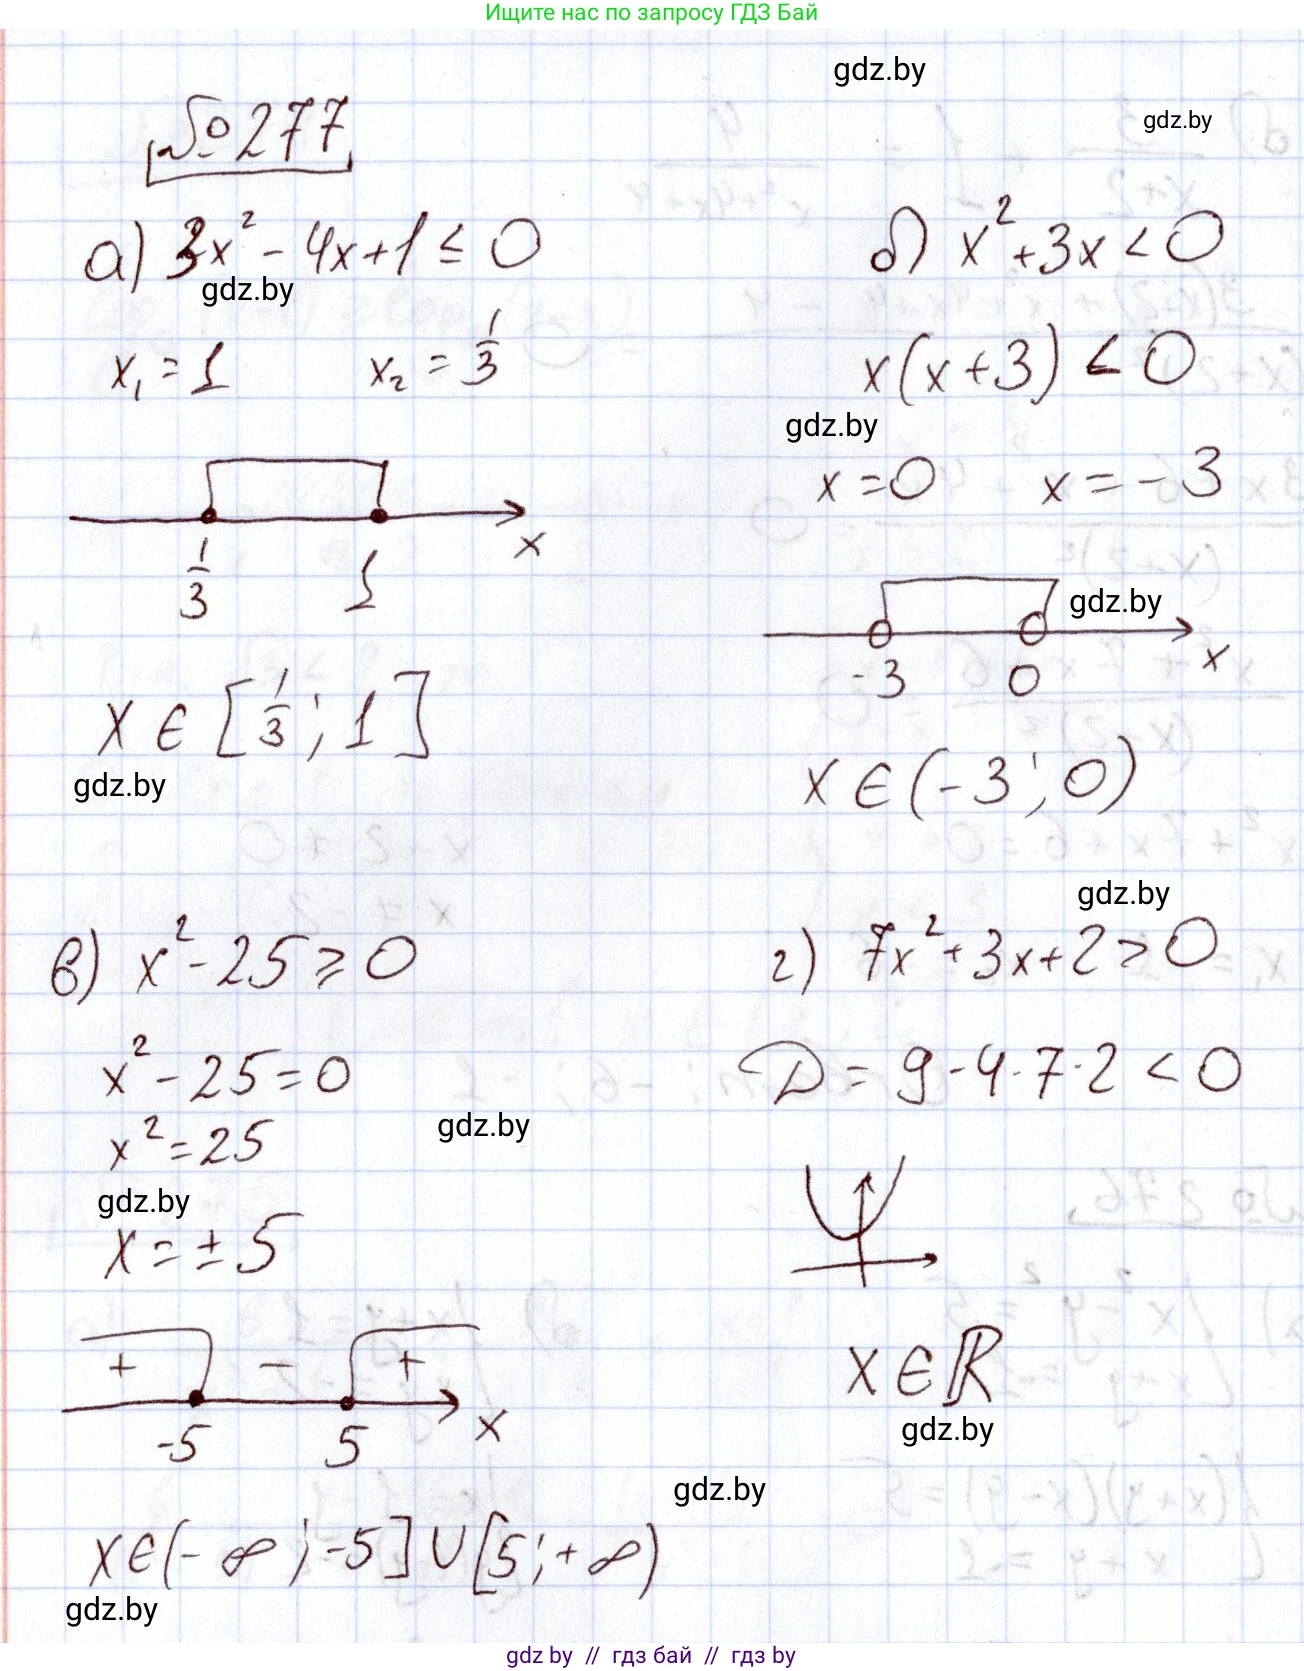 Ищите нас по запросу ГДЗ Бай
gdz.by
gdz.by
№ 277
а) 3x² - 4x + 1 ≤ 0
gdz.by
x₁ = 1 x₂ = 1/3
1/3 1 x
x ∈ [1/3; 1]
gdz.by
б) x² + 3x < 0
x(x + 3) < 0
gdz.by
x = 0 x = -3
gdz.by
-3 0 x
x ∈ (-3; 0)
в) x² - 25 ≥ 0
x² - 25 = 0
x² = 25
gdz.by
gdz.by
x = ± 5
+ - +
-5 5 x
x ∈ (-∞; -5] ∪ [5; +∞)
gdz.by
gdz.by
г) 7x² + 3x + 2 > 0
D = 9 - 4·7·2 < 0
x ∈ ℝ
gdz.by
gdz.by
gdz by // гдз бай // гдз by